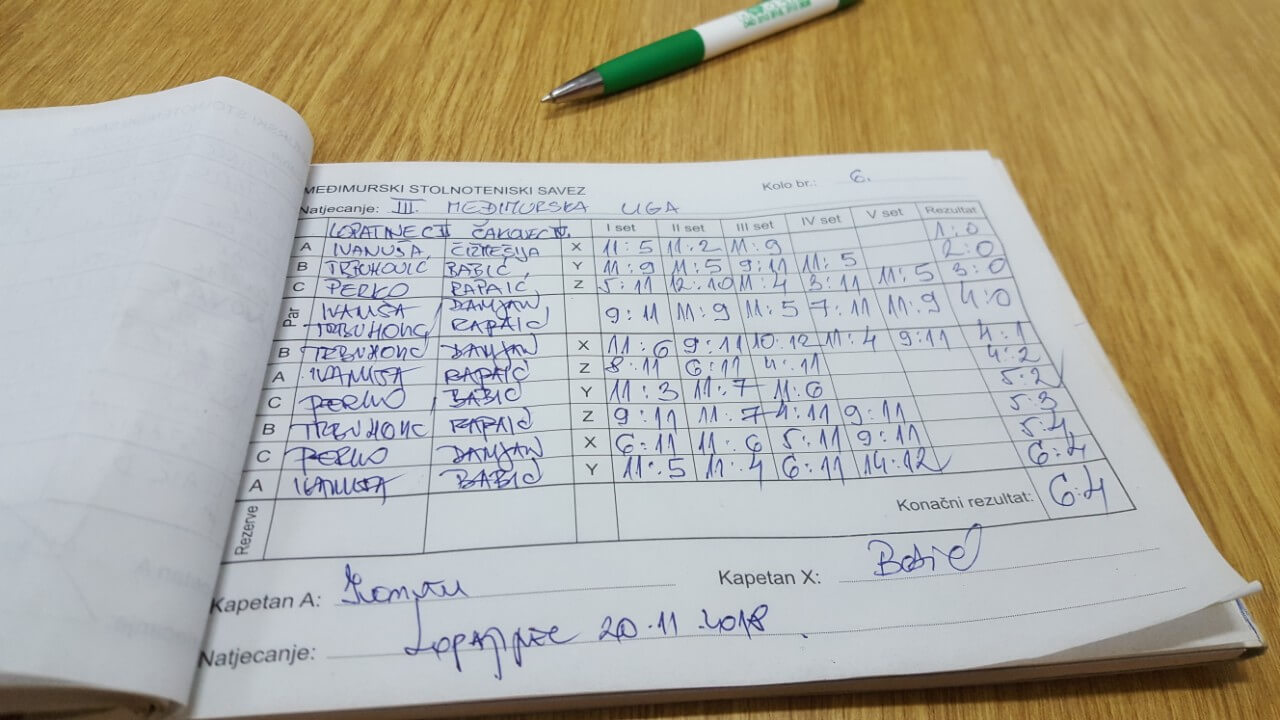 MEĐIMURSKI STOLNOTENISKI SAVEZ Kolo br.: 6.
Natjecanje: III. MEĐIMURSKA LIGA
LOPATINEC II ČAKOVEC IV. I set II set III set IV set V set Rezultat
A IVANUŠA ČIZMEŠIJA X 11:5 11:2 11:9 1:0
B TRBUHOVIĆ BABIĆ Y 11:9 11:5 9:11 11:5 2:0
C PERKO RAPAIĆ Z 5:11 12:10 11:4 3:11 11:5 3:0
Par IVANUŠA DAMJAN
TRBUHOVIĆ RAPAIĆ 9:11 11:9 11:5 7:11 11:9 4:0
B TRBUHOVIĆ DAMJAN X 11:6 9:11 10:12 11:4 9:11 4:1
A IVANUŠA RAPAIĆ Z 8:11 6:11 4:11 4:2
C PERKO BABIĆ Y 11:3 11:7 11:6 5:2
B TRBUHOVIĆ RAPAIĆ Z 9:11 11:7 4:11 9:11 5:3
C PERKO DAMJAN X 6:11 11:6 5:11 9:11 5:4
A IVANUŠA BABIĆ Y 11:5 11:4 6:11 14:12 6:4
Rezerve Konačni rezultat: 6:4
Kapetan A: Kapetan X: Babić
Natjecanje: Lopatinec 20.11.2018